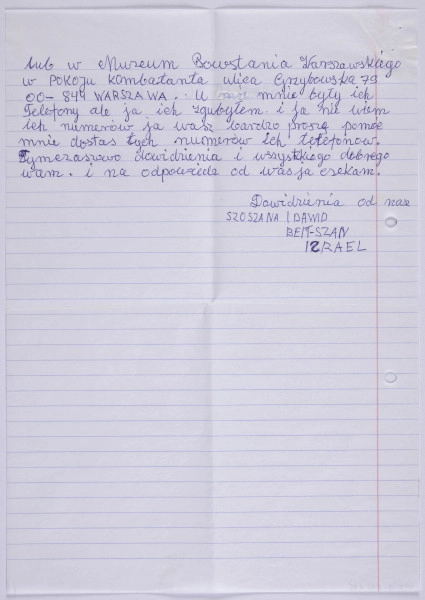 lub w Muzeum Powstania Warszawskiego
w POKOJU Kombatanta ulica Grzybowska 79
00-844 WARSZAWA. U mnie były ich
Telefony ale ja ich zgubyłem i ja nie wiem
ich numerów ja was bardzo proszę pomóc
mnie dostas tych numerów ich telefonów.
Tymczasowo dowidzienia i wszystkiego dobrego
wam. i na odpowiedz od was ja czekam.
Dowidzienia od nas
SZOSZANA I DAWID
BEIT-SZAN
IZRAEL